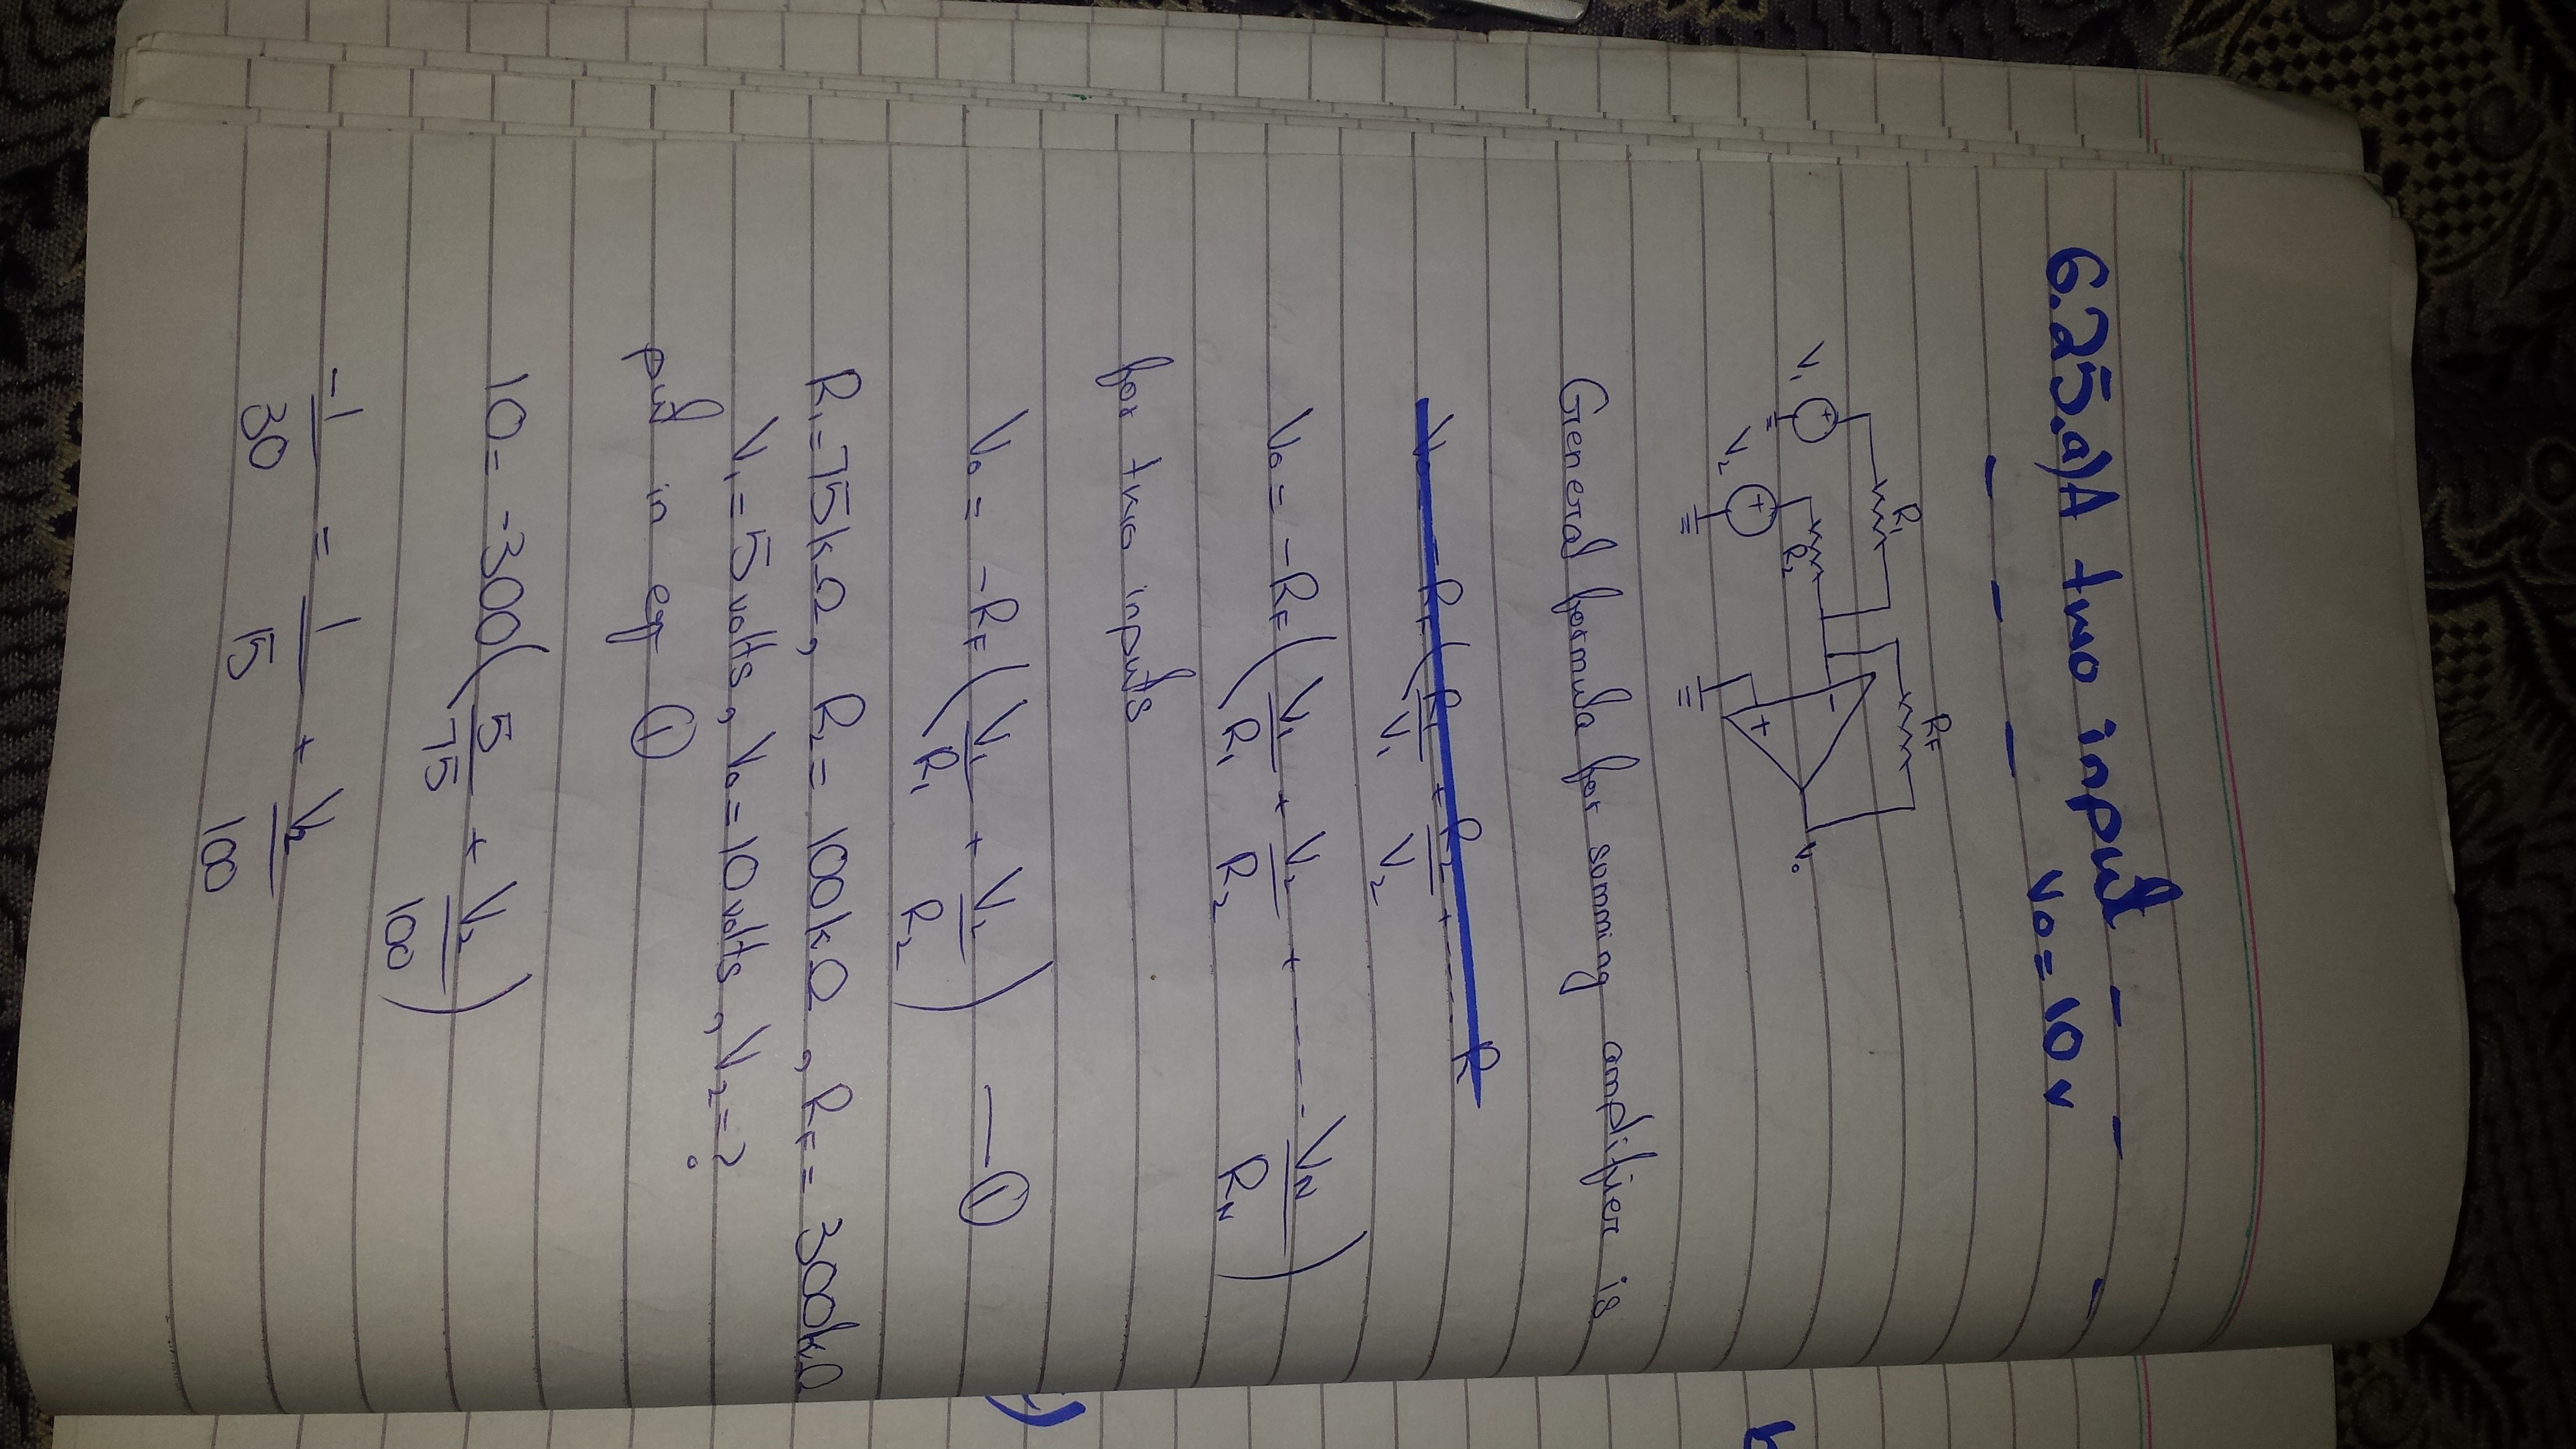 6.25.a) A two input - - -
- - - Vo = 10 v
R1
RF
V1
+
V2
+
R2
-
+
Vo
General formula for summing amplifier is
Vo = -RF ( R1/V1 + R2/V2 + ----- R
Vo = -RF ( V1/R1 + V2/R2 + ----- VN/RN )
for two inputs
Vo = -RF ( V1/R1 + V2/R2 ) — ①
R1 = 75kΩ, R2 = 100kΩ, RF = 300kΩ
V1 = 5 volts, Vo = 10 volts, V2 = ?
put in eq ①
10 = -300 ( 5/75 + V2/100 )
-1/30 = 1/15 + V2/100